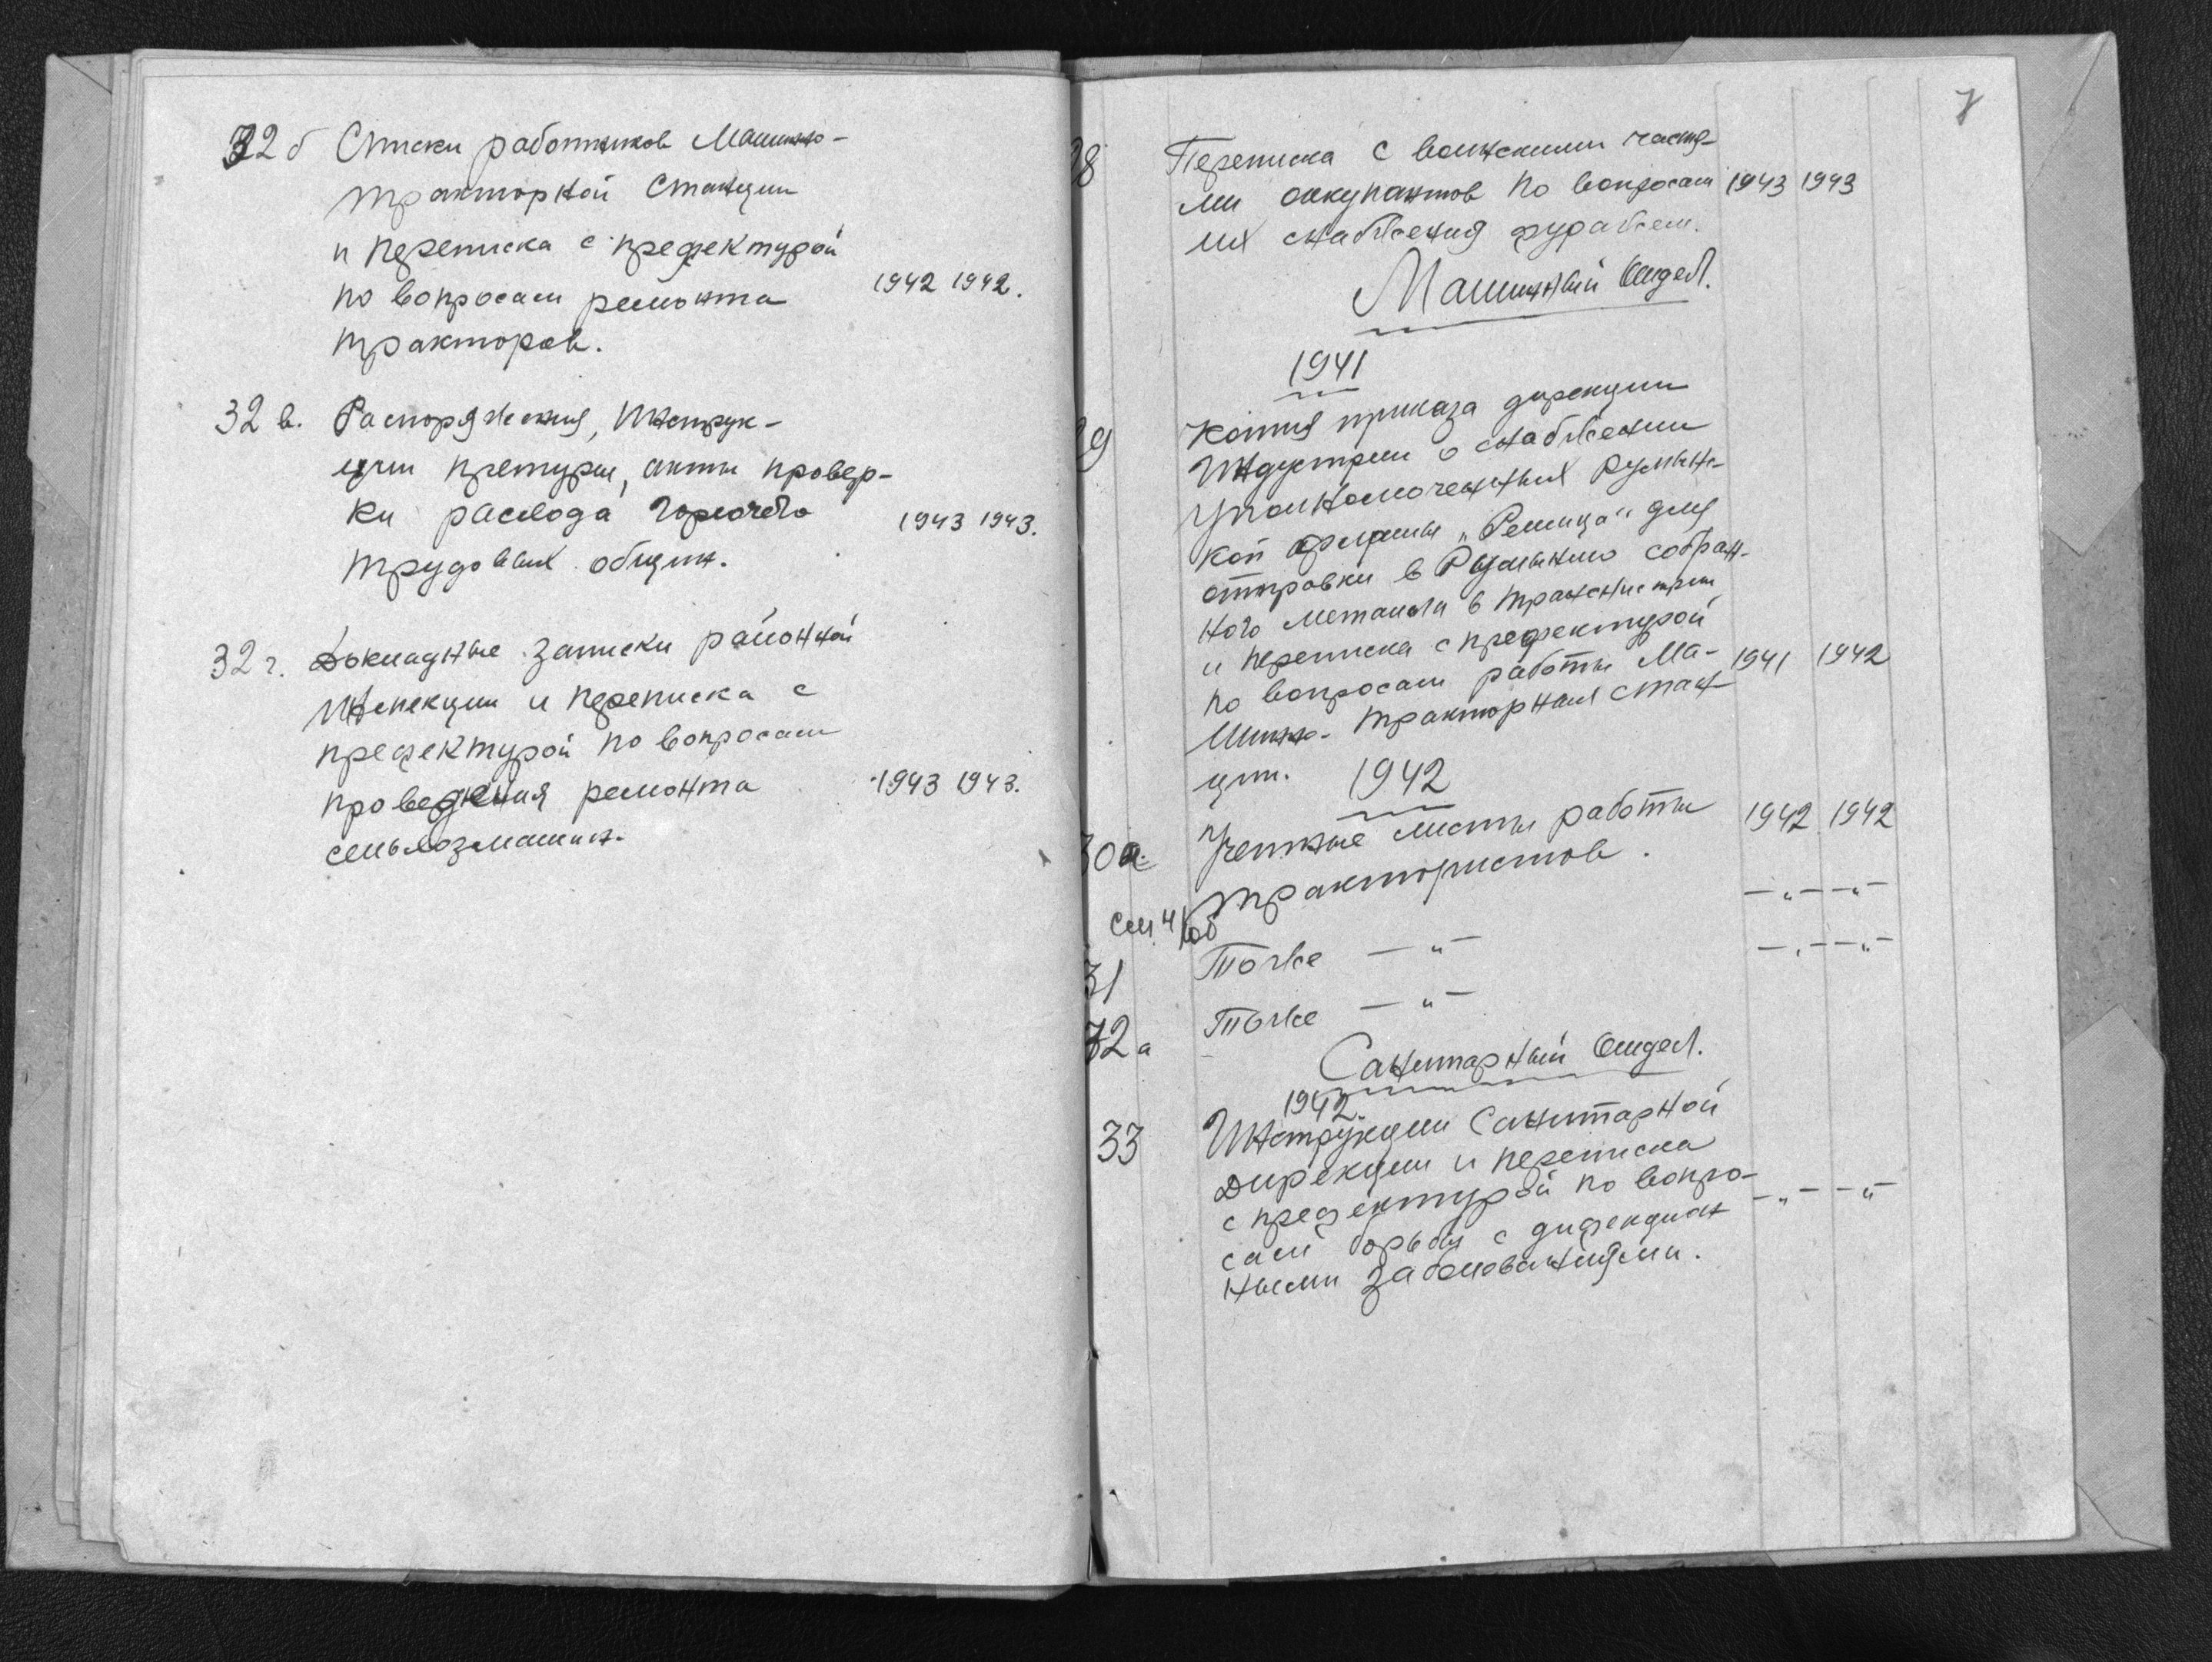 32 б Списки работников Машинно-
тракторной Станции
и переписка с префектурой
по вопросам ремонта 1942 1942.
тракторов.
32 в. Распоряжения, Инструк-
ции претуры, акты провер-
ки расхода горючего 1943 1943.
трудовых общин.
32 г. Докладные записки районной
Инспекции и переписка с
префектурой по вопросам
проведения ремонта 1943 1943.
сельхозмашин.
7
28 Переписка с воинскими частя-
ми оккупантов по вопросам 1943 1943
их снабжения фуражем.
Машинный Отдел.
1941
29 Копия приказа дирекции
Индустрии о снабжении
Уполномоченных Румынс-
кой фирмы „Решица" для
отправки в Румынию собран-
ного металла в Транснистрии
и переписка с префектурой
по вопросам работы Ма- 1941 1942
шинно-тракторных стан-
ции.
1942
30 а. Учетные листы работы 1942 1942
трактористов.
См. 4/об
31 Тоже — " — — " — — " —
32 а Тоже — " — — " — — " —
Санитарный Отдел.
1942.
33 Инструкции Санитарной
Дирекции и переписка
с префектурой по вопро- — " — — " —
сам борьбы с
ными заболеваниями.